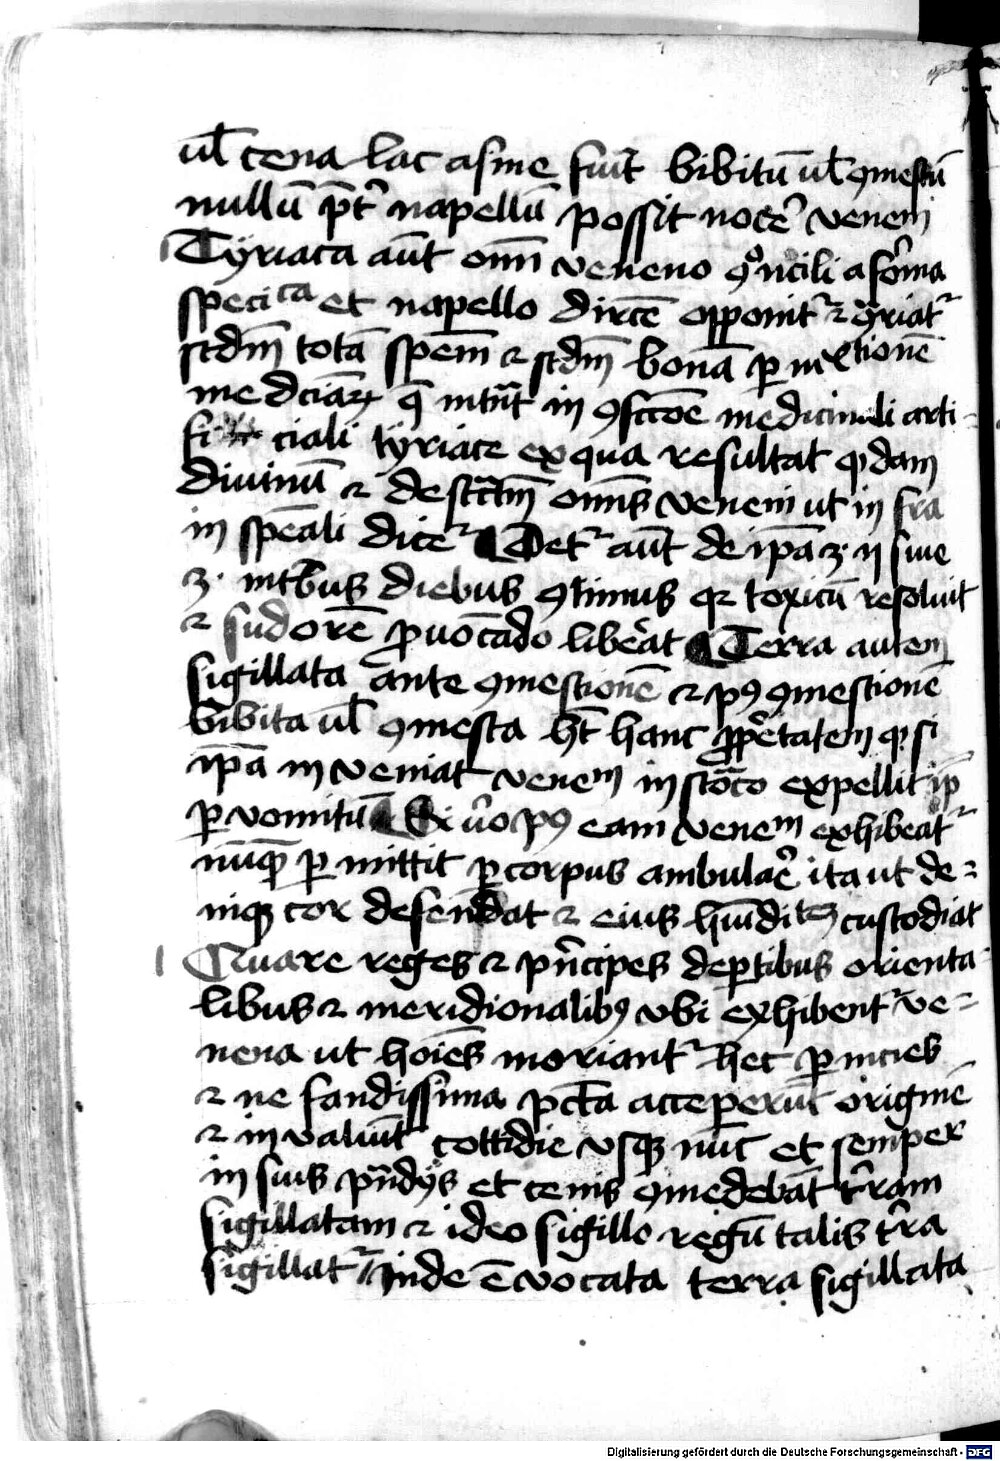 ul̄ cena lac asine fuīt bibitū ul̄ ꝯmestū
nullū p̄t̉ napellū possit nocē venenū
Tÿriaca aūt om̄i veneno ꝯ̊ncili a forma
specica et napello dircē opponit᷑ ⁊ tÿriat᷑
scdm̄ totā spēm ⁊ scdm̄ bonā ꝑmixtionē
medciaꝝ q̄ intrāt in ꝯfcc̄oe medicinali arti-
fi ciali tÿriace ex qua resultat qͦdam
diuinū ⁊ destc̄tm̄ om̄is veneni ut in fra
in spēali dicet᷑ Det᷑ aūt de ip̄a ʒ ij siue
ʒ. intribus diebus ꝯtinuis qꝛ toxicū resoluit
⁊ sudorē ꝓuocādo libeāt Terra autem
sigillata ante ꝯmestionē ⁊ pꝰ ꝯmestionē
bibita ul̄ ꝯmesta hȝ hanc ꝓp̉etatem qꝫ si
ip̄a in veniat venenū in stōco expellit ip̄
ꝑ vomitū Si v̉o pꝰ eam venenū exhibeat᷑
nūqȝ ꝑmittit ꝑ corpus ambulare ita ut de-
niqꝫ cor defendat ⁊ eius hūidi custodiat
Quare reges ⁊ pn̉cipes de ꝑtibus orienta
libus ⁊ meridionalibꝰ vbi exhibent᷑ ve-
nena ut hoīes moriant᷑ hec ꝑnicies
⁊ ne fandissima pcc̄ta acceperūt originē
⁊ in valuīt cottidie vsqꝫ nūc et semper
in suis pn̄dÿs et cenis ꝯmedebāt t̉ram
sigillatam ⁊ ideo sigillo regū talis t̉ra
sigillat᷑ Inde ē vocata terra sigillata
Digitalisierung gefördert durch die Deutsche Forschungsgemeinschaft - DFG